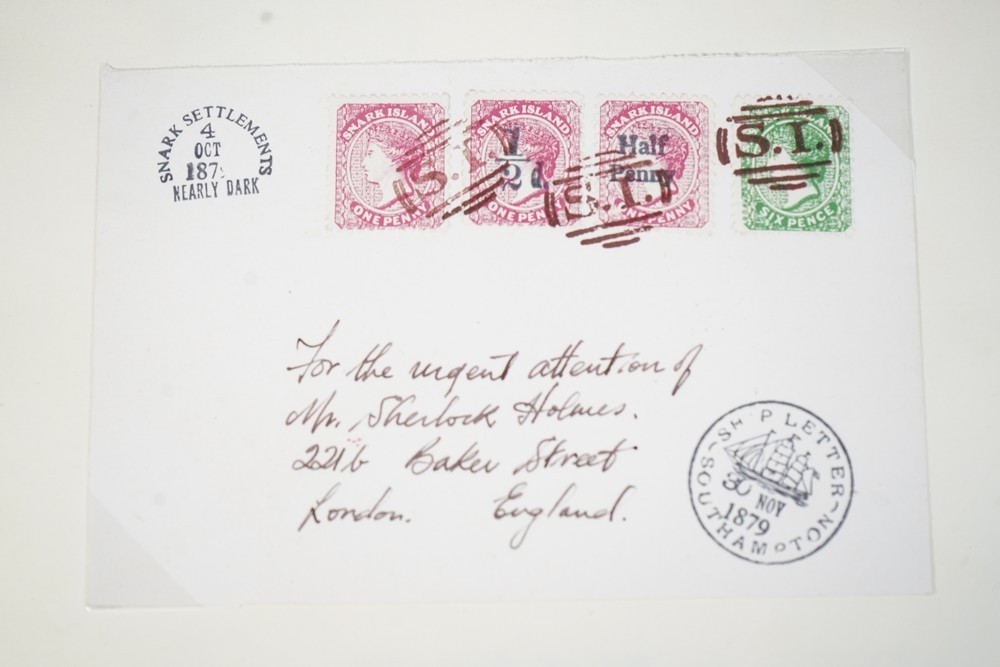 SNARK SETTLEMENTS
4
OCT
187
NEARLY DARK
SNARK ISLAND
ONE PENNY
S.I.
SNARK ISLAND
1/2 d.
ONE PENNY
SNARK ISLAND
Half
Penny
ONE PENNY
S.I.
S.I.
SIX PENCE
For the urgent attention of
Mr. Sherlock Holmes.
221b Baker Street
London. England.
SHIP LETTER
30 NOV
1879
SOUTHAMPTON